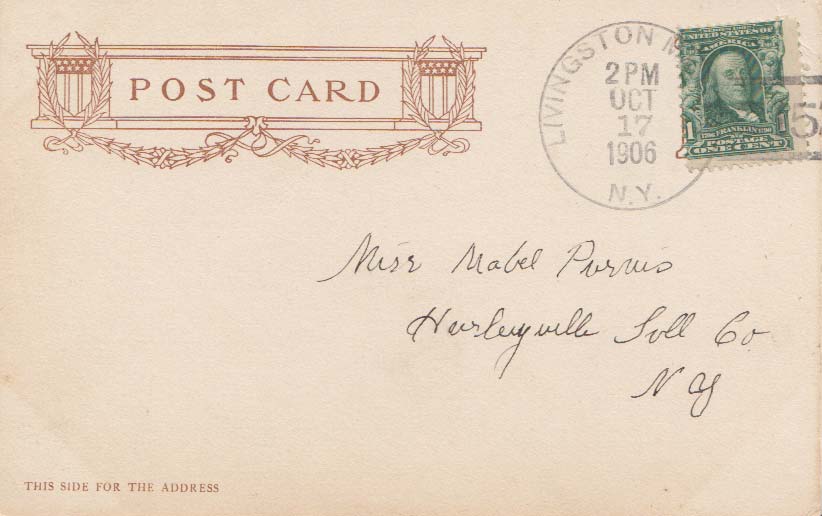 POST CARD
LIVINGSTON M
2 PM
OCT
17
1906
N.Y.
UNITED STATES OF
AMERICA
FRANKLIN
1 1
POSTAGE
ONE CENT
Miss Mabel Purvis
Hurleyville Sull Co
N Y
THIS SIDE FOR THE ADDRESS